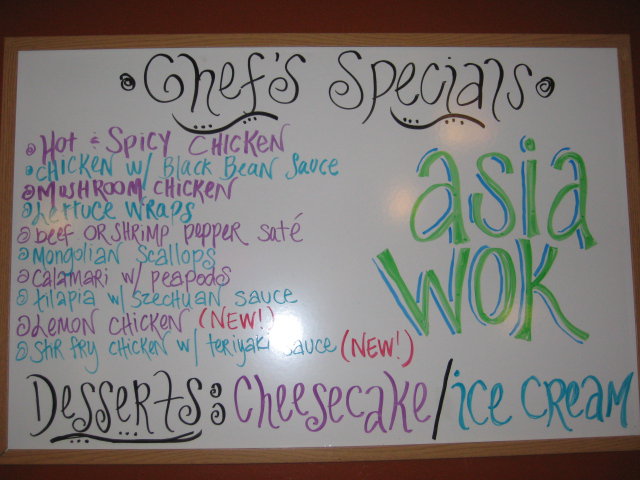 • Chef's Specials •
Hot & SPICY CHICKEN
CHICKEN w/ Black Bean Sauce
MUSHROOM CHICKEN
Lettuce WRAPS
beef OR SHRIMP pepper saté
Mongolian Scallops
Calamari w/ peapods
tilapia w/ Szechuan sauce
Lemon Chicken (NEW!)
Stir fry chicken w/ teriyaki sauce (NEW!)
asia
WOK
Desserts: Cheesecake/ice cream